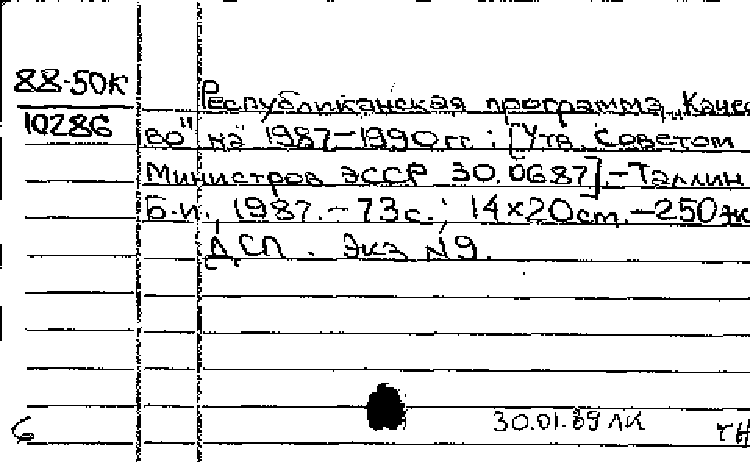 88-50К
10286
Республиканская программа „Качест
во" на 1987-1990гг.: [Утв. Советом
Министров ЭССР 30.0687].-Таллин
Б.и., 1987.-73с.; 14×20см.-250эк
ДСП. Экз №9.
30.01.89 ЛК